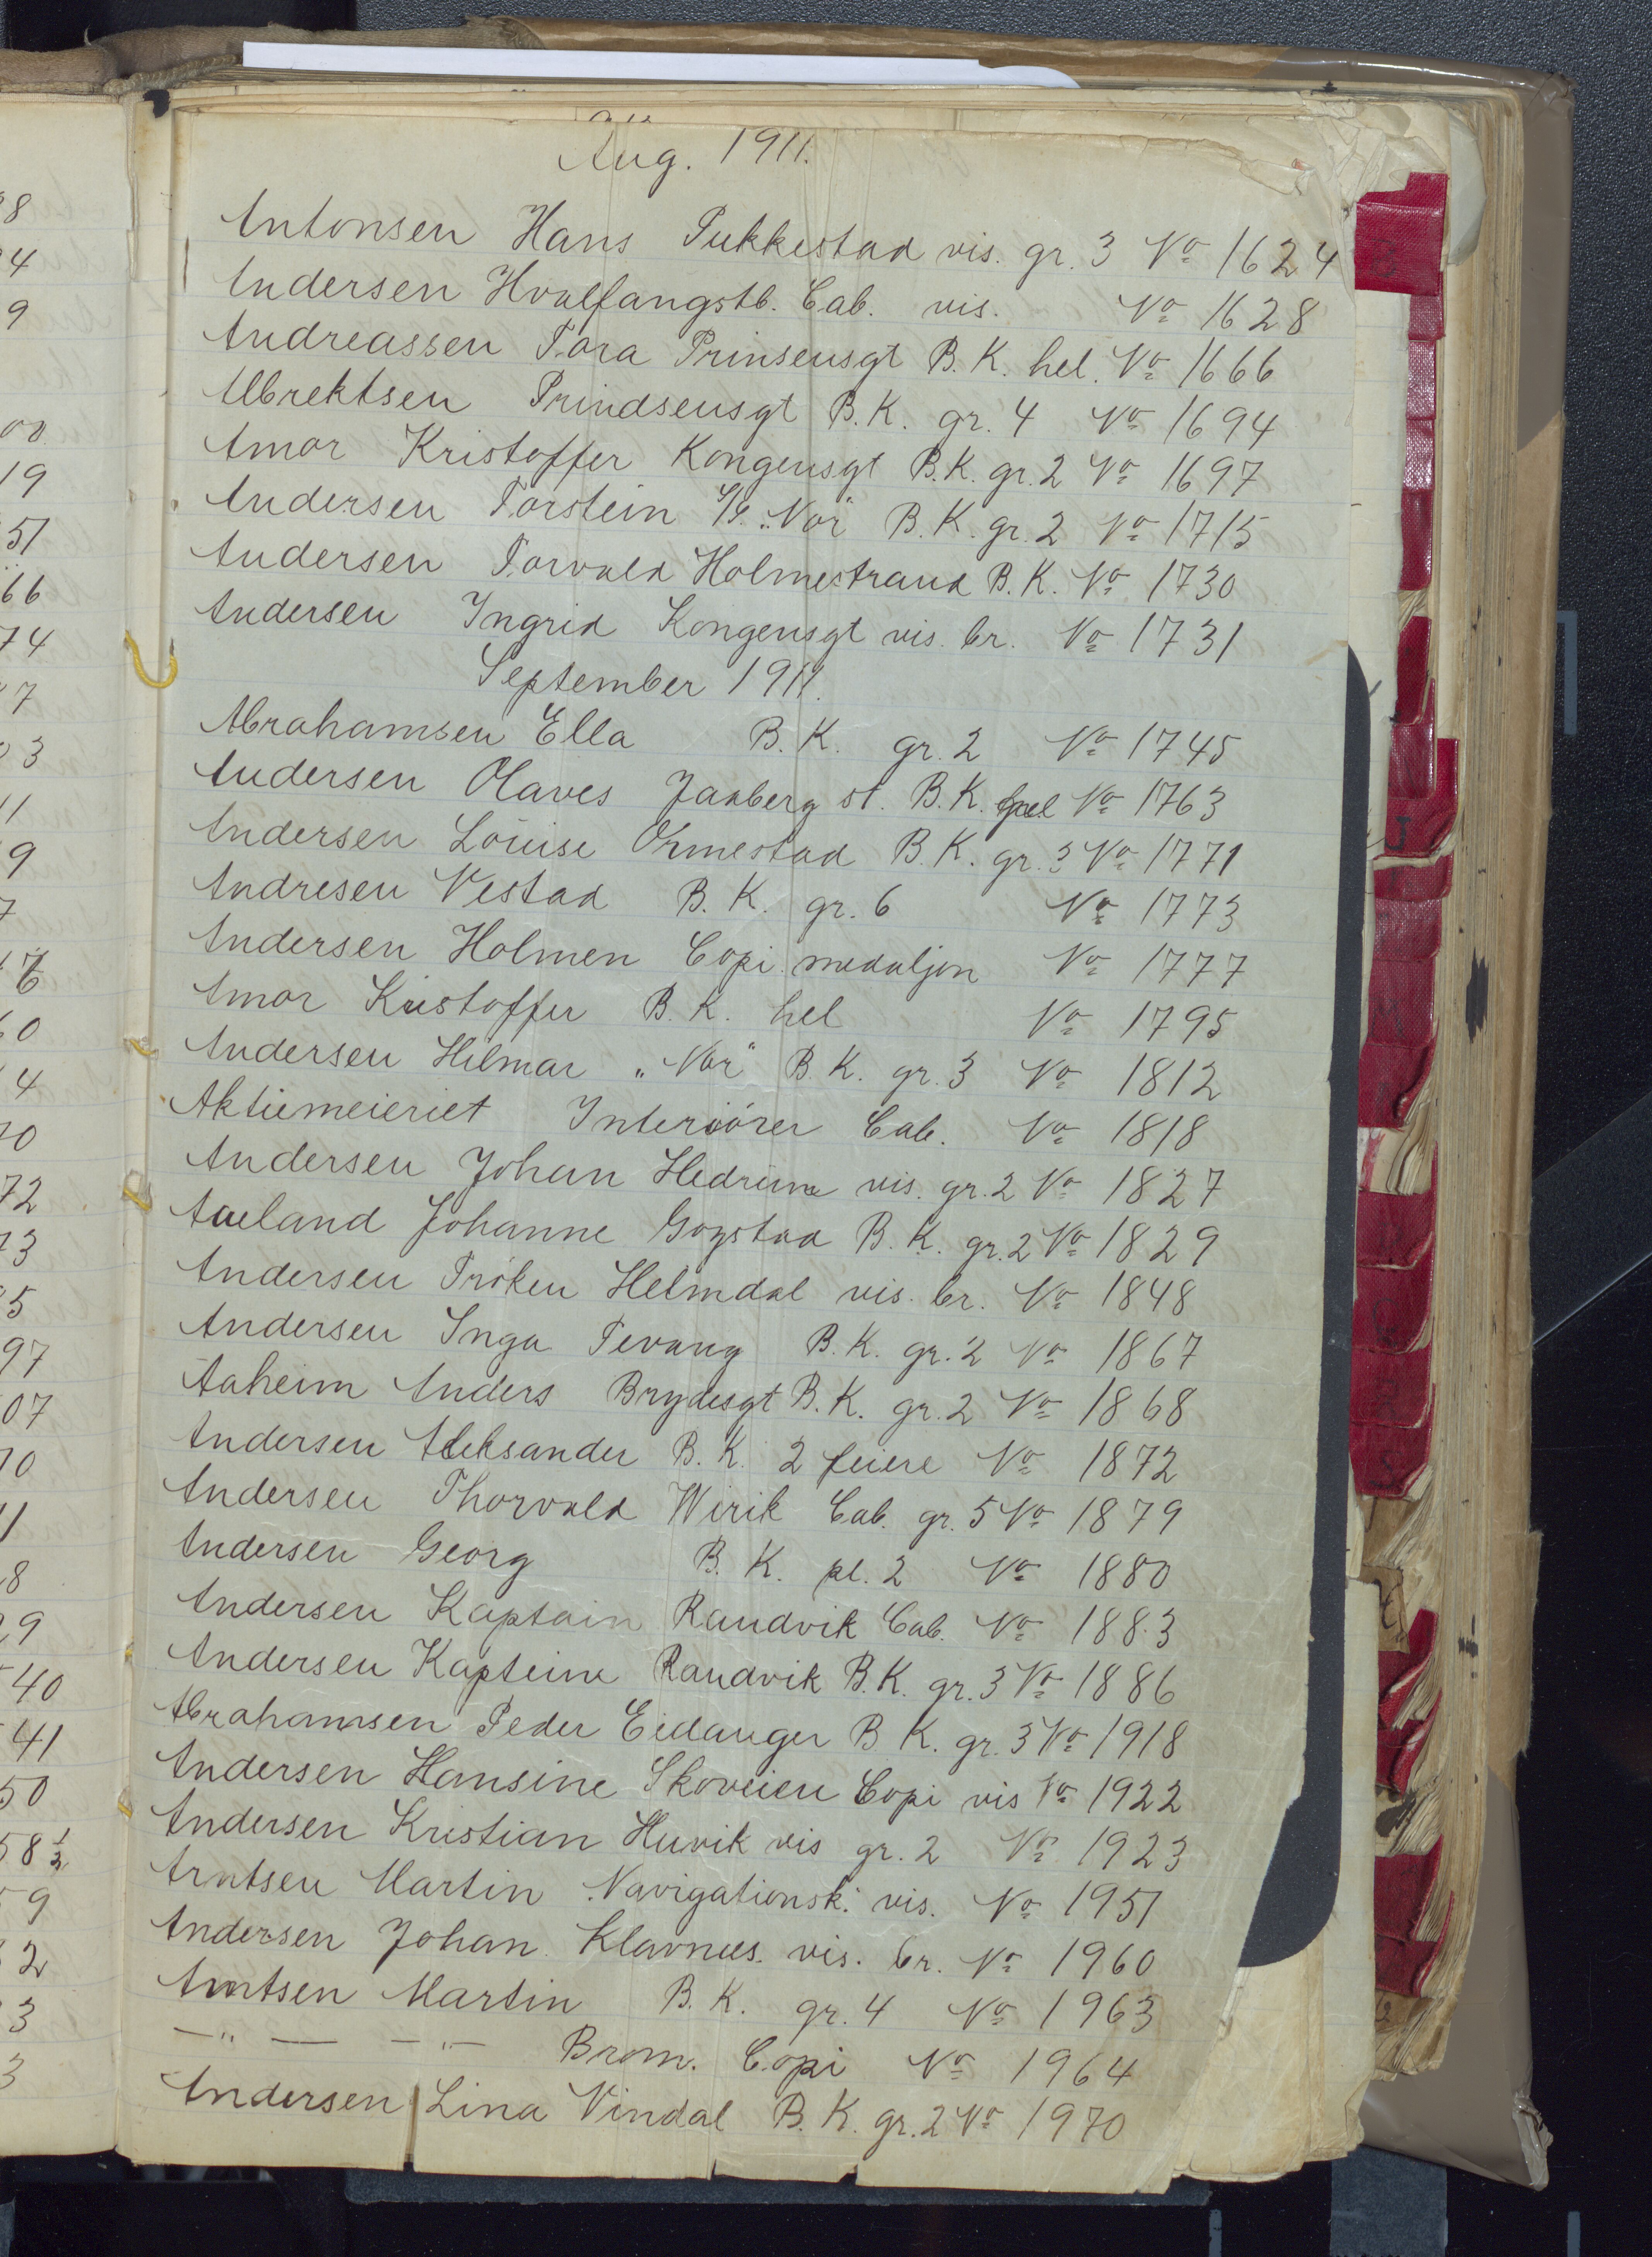 Aug. 1911.
Antonsen Hans Pukkestad vis. gr. 3 No 1624
Andersen Hvalfangstb. Cab. vis. No 1628
Andreassen Tora Prinsensgt B.K. hel. No 1666
Albrektsen Prindsensgt B.K. gr. 4 No 1694
Amor Kristoffer Kongensgt B.K. gr. 2 No 1697
Andersen Torstein S/S. „Nor" B.K. gr. 2 No 1715
Andersen Torvald Holmestrand B.K. No 1730
Andersen Ingrid Kongensgt vis. br. No 1731
September 1911.
Abrahamsen Ella B.K. gr. 2 No 1745
Andersen Olaves Jaaberg st. B.K. No 1763
Andersen Louise Ormestad B.K. gr. 3 No 1771
Andresen Vestad B.K. gr. 6 No 1773
Andersen Holmen Copi medaljon No 1777
Amor Kristoffer B.K. hel No 1795
Andersen Hilmar „Nor" B.K. gr. 3 No 1812
Aktiemeieriet Interiörer Cab. No 1818
Andersen Johan Hedrum vis. gr. 2 No 1827
Aaeland Johanne Gogstad B.K. gr. 2 No 1829
Andersen Fröken Helmdal vis. br. No 1848
Andersen Inga Tevang B.K. gr. 2 No 1867
Aaheim Anders Brydesgt B.K. gr. 2 No 1868
Andersen Aleksander B.K. 2 feiere No 1872
Andersen Thorvald Wirik Cab. gr. 5 No 1879
Andersen Georg B.K. pl. 2 No 1880
Andersen Kaptain Randvik Cab. No 1883
Andersen Kapteine Randvik B.K. gr. 3 No 1886
Abrahamsen Peder Eidanger B.K. gr. 3 No 1918
Andersen Hansine Skoveien Copi vis No 1922
Andersen Kristian Huvik vis gr. 2 No 1923
Arntsen Martin Navigationsk. vis. No 1951
Andersen Johan Klavnes. vis. br. No 1960
Arntsen Martin B.K. gr. 4 No 1963
—"— —"— Brom. Copi No 1964
Andersen Lina Vindal B.K. gr. 2 No 1970